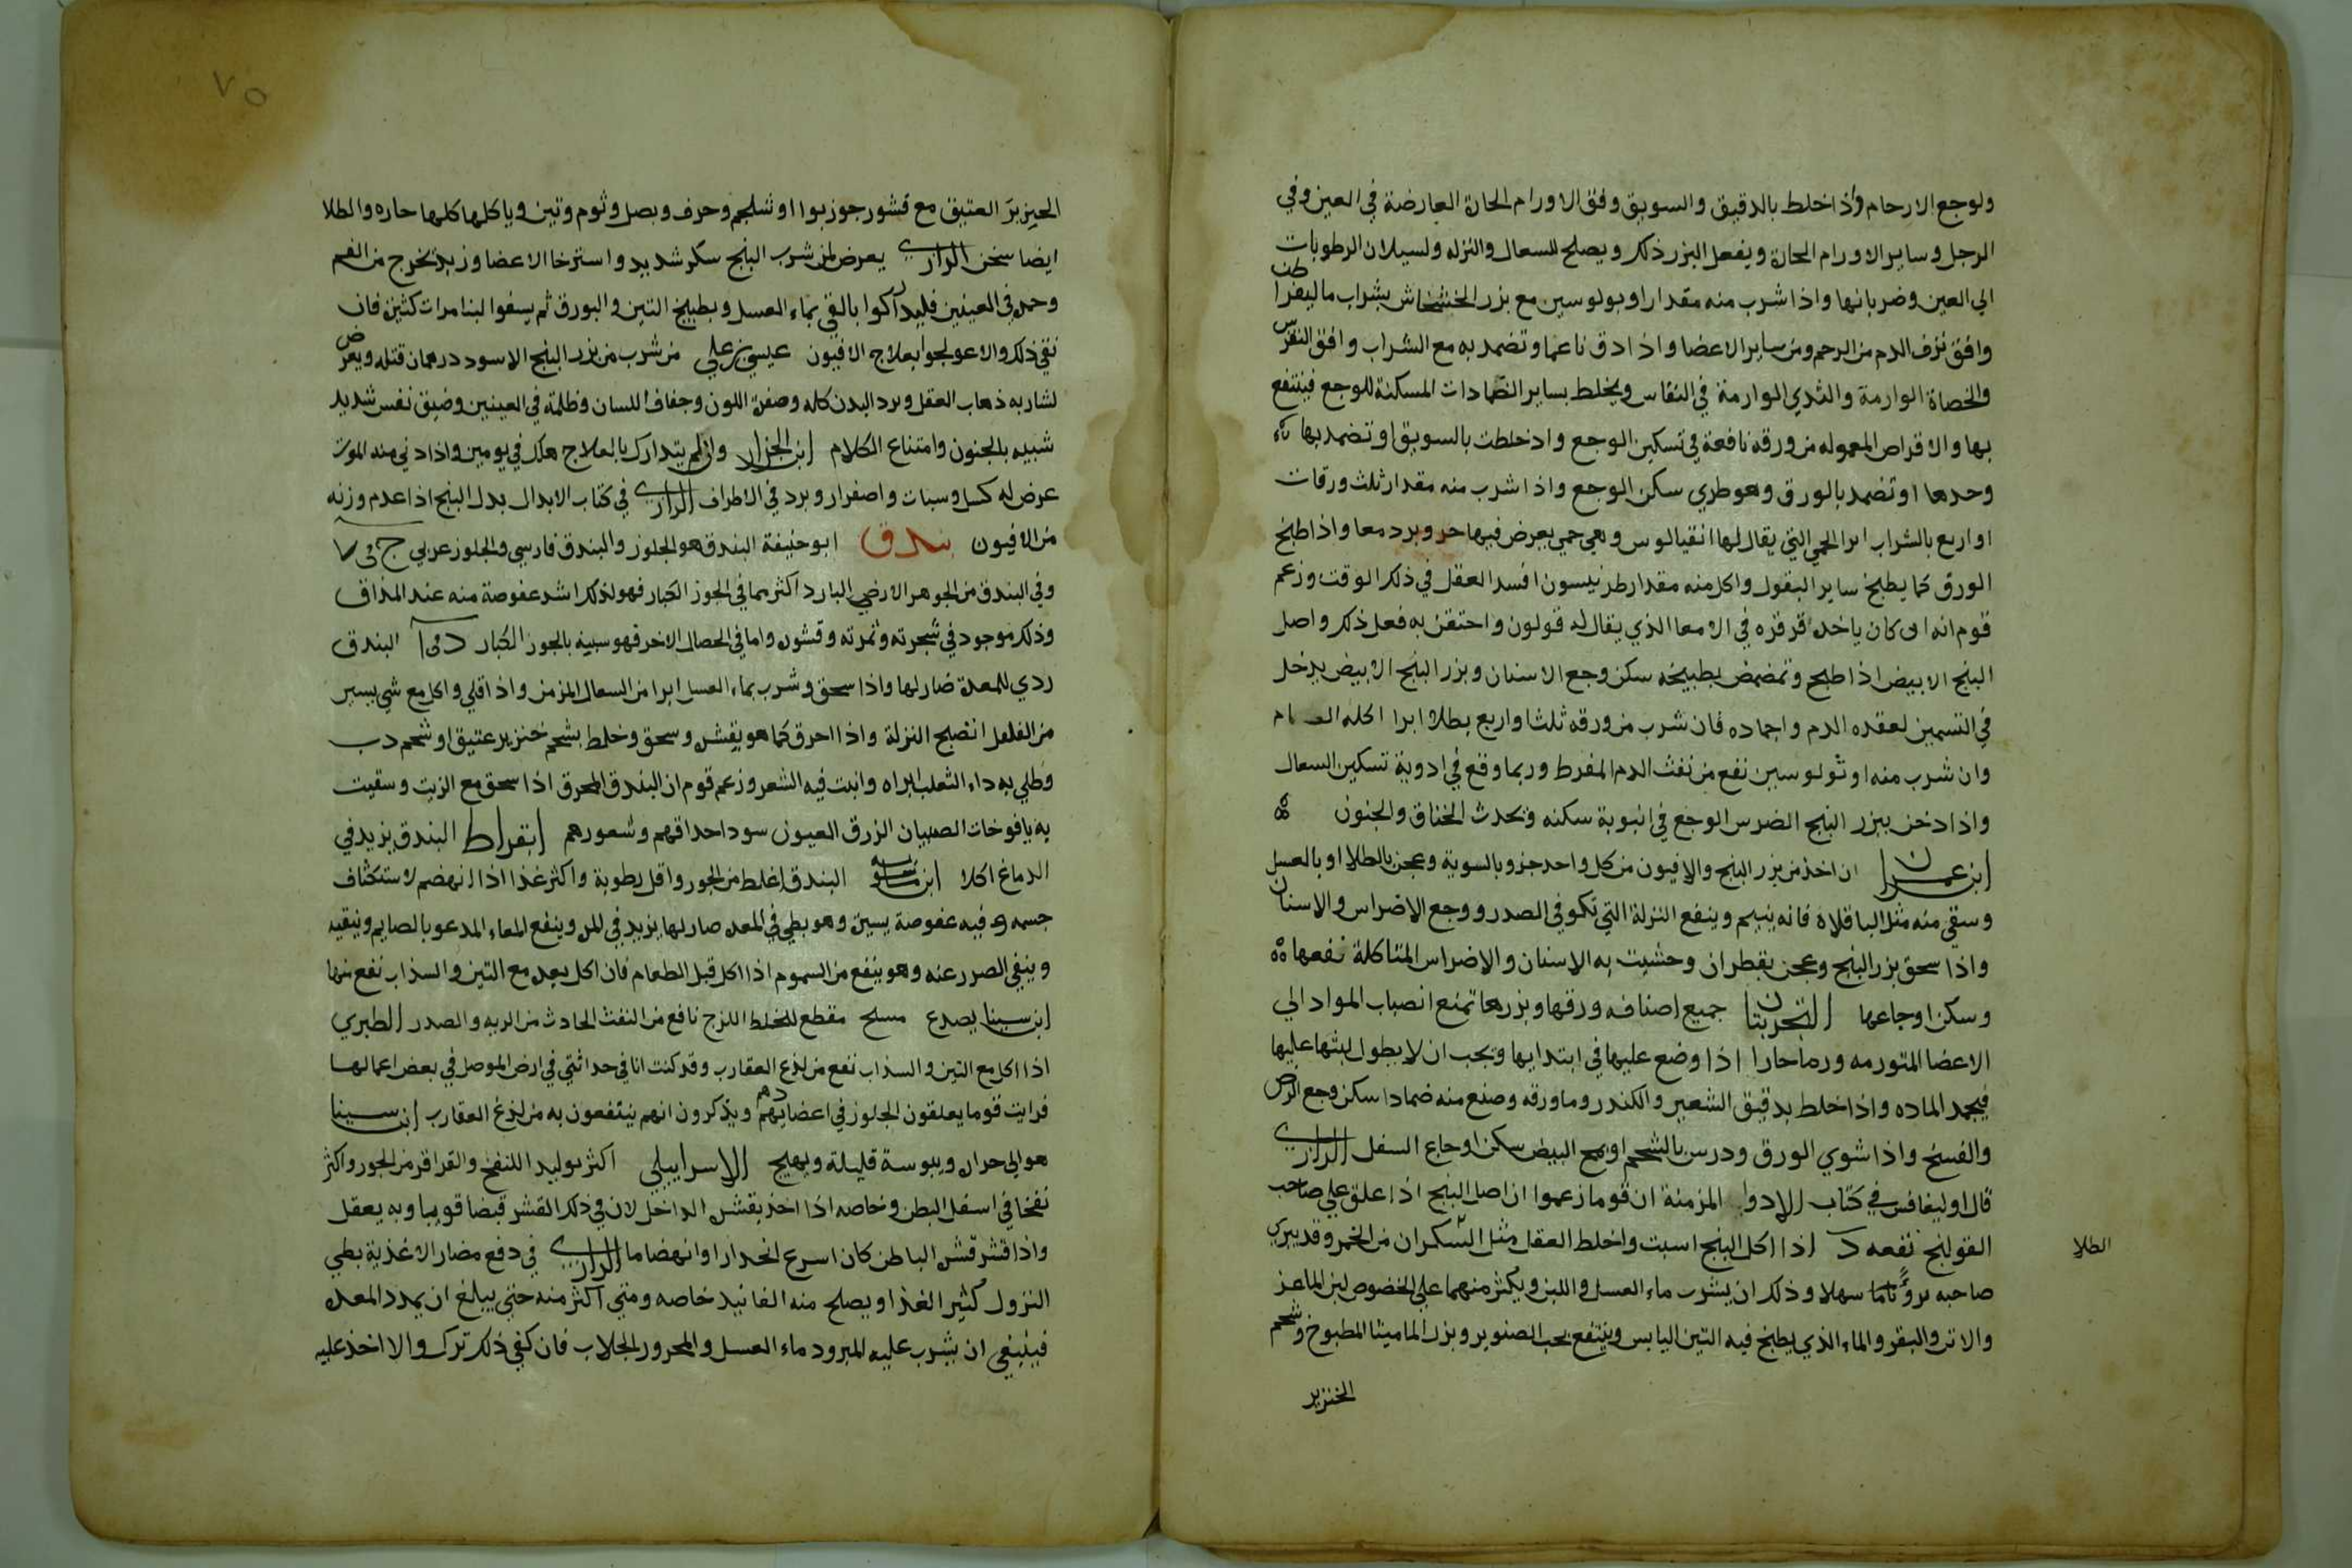 ولوجع الارحام واذا خلط بالدقيق والسويق وفق الاورام الحارة العارضة في العين وفي
الرجل وساير الاورام الحارة ويفعل البزر ذلك ويصلح للسعال والنزله ولسيلان الرطوبات
الي العين وضربانها واذا شرب منه مقدار اوبولوسين مع بزر الخشخاش بشراب ماليقراطن
وافق نزف الدم من الرحم ومن ساير الاعضا واذا دق ناعما وتضمد به مع الشراب وافق النقرس
والخصاة الوارمة والثدي الوارمة في النفاس ويخلط بساير الضمادات المسكنة للوجع فينتفع
بها والاقراص المعموله من ورقه نافعة في تسكين الوجع واذ خلطت بالسويق او تضمد بها
وحدها او تضمد بالورق وهو طري سكن الوجع واذا شرب منه مقدار ثلث ورقات
او اربع بالشراب ابرا الحمي التي يقال لها انقيالوس وهي حمي يعرض فيها حر وبرد معا واذا طبخ
الورق كما يطبخ ساير البقول واكل منه مقدار طرنيسون افسد العقل في ذلك الوقت وزعم
قوم انه ان كان ياخذ قرقره في الامعا الذي يقال له قولون واحتقن به فعل ذلك واصل
البنج الابيض اذا طبخ وتمضمض بطبيخه سكن وجع الاسنان وبزر البنج الابيض يدخل
في التسمين لعقده الدم واجماده فان شرب من ورقه ثلثا واربع بطلا ابرا اكله العظام
وان شرب منه اوثولوسين نفع من نفث الدم المفرط وربما وقع في ادوية تسكين السعال
واذا دخن ببزر البنج الضرس الوجع في انبوبة سكنه ويحدث الخناق والجنون
ابن عمران ان اخذ من بزر البنج والافيون من كل واحد جزو بالسوية وعجن بالطلا او بالعسل
وسقي منه مثل الباقلاة فانه ينيم وينفع النزلة التي تكون في الصدر ووجع الاضراس والاسنان
واذا سحق بزر البنج وعجن بقطران وحشيت به الاسنان والاضراس المتاكلة نفعها
وسكن اوجاعها التجربتان جميع اصنافه ورقها وبزرها تمنع انصباب المواد الي
الاعضا المتورمه ورما حارا اذا وضع عليها في ابتدايها ويجب ان لا يطول لبثها عليها
فيجمد الماده واذا خلط بدقيق الشعير والكندر وما ورقه وصنع منه ضمادا سكن وجع الرض
والفسخ واذا شوي الورق ودرس بالشحم او بمح البيض سكن اوجاع السفل الرازي
قال اوليغافس في كتاب الادوا المزمنة ان قوما زعموا ان اصل البنج اذا علق علي صاحب
القولنج نفعه د اذا اكل البنج اسبت واخلط العقل مثل السكران من الخمر وقد يبري
صاحبه برؤا تاما سهلا وذلك ان يشرب ماء العسل واللبن ويكثر منهما علي الخصوص لبن الماعز
والاتن والبقر والماء الذي يطبخ فيه التين اليابس وينتفع بحب الصنوبر وبزر الماميثا المطبوخ وشحم
الخنزير
الطلا
٧٥
الخيزير العتيق مع قشور جوزبوا او شلجم وحرف وبصل وثوم وتين وياكلها كلها حاره والطلا
ايضا سخن الرازي يعرض لمن شرب البنج سكر شديد واسترخا الاعضا وزبد يخرج من الفم
وحمره في العينين فليداركوا بالقي بماء العسل وبطبيخ التين والبورق ثم يسقوا لبنا مرات كثيرة فان
نقي ذلك والا عولجوا بعلاج الافيون عيسي بن علي من شرب من بزر البنج الاسود درهمان قتله ويعرض
لشاربه ذهاب العقل وبرد البدن كله وصفرة اللون وجفاف اللسان وظلمة في العينين وضيق نفس شديد
شبيه بالجنون وامتناع الكلام ابن الجزار وان لم يتدارك بالعلاج هلك في يومين واذا دني منه الموت
عرض له كسل وسبات واصفرار وبرد في الاطراف الرازي في كتاب الابدال بدل البنج اذا عدم وزنه
من الافيون بندق ابو حنيفة البندق هو الجلوز والبندق فارسي والجلوز عربي ج في
وفي البندق من الجوهر الارضي البارد اكثر مما في الجوز الكبار فهو لذلك اشد عفوصة منه عند المذاق
وذلك موجود في شجرته وثمرته وقشره واما في الخصال الاخر فهو سبيه بالجوز الكبار د في ا البندق
ردي للمعدة ضار لها واذا سحق وشرب بماء العسل ابرا من السعال المزمن واذا قلي واكل مع شي يسير
من الفلفل انضج النزلة واذا احرق كما هو بقشره وسحق وخلط بشحم خنزير عتيق او شحم دب
وطلي به داء الثعلب ابراه وانبت فيه الشعر وزعم قوم ان البندق المحرق اذا سحق مع الزيت وسقيت
به يافوخات الصبيان الزرق العيون سود احداقهم وشعورهم ابقراط البندق يزيد في
الدماغ اكلا ابن ماسويه البندق اغلط من الجوز واقل رطوبة واكثر غذا اذا انهضم لاستكثاف
جسمه وفيه عفوصة يسيرة وهو بطي في المعده ضار لها يزيد في المره وينفع المعاء المدعو بالصايم وينقيه
وينفي الضرر عنه وهو ينفع من السموم اذا اكل قبل الطعام فان اكل بعد مع التين والسذاب نفع منها
ابن سينا يصدع مسلح مقطع للخلط اللزج نافع من النفث الحادث من الريه والصدر الطبري
اذا اكل مع التين والسذاب نفع من لذع العقارب وقد كنت انا في حداثتي في ارض الموصل في بعض اعمالها
فرايت قوما يعلقون الجلوز في اعضادهم ويذكرون انهم ينتفعون به من لذغ العقارب ابن سينا
هو الي حراره ويبوسة قليلة ويهيج الاسراييلي اكثر توليد اللنفخ والقراقر من الجوز واكثر
نفخا في اسفل البطن وخاصه اذا اخذ بقشره الداخل لان في ذلك القشر قبضا قويا وبه يعقل
واذا قشر قشره الباطن كان اسرع انحدارا وانهضاما الرازي في دفع مضار الاغذية بطي
النزول كثير الغذا ويصلح منه الفانيد خاصه ومتي اكثر منه حتي يبلغ ان يمدد المعده
فينبغي ان يشرب عليه المبرود ماء العسل والمحرور الجلاب فان كفي ذلك ترك والا اخذ عليه